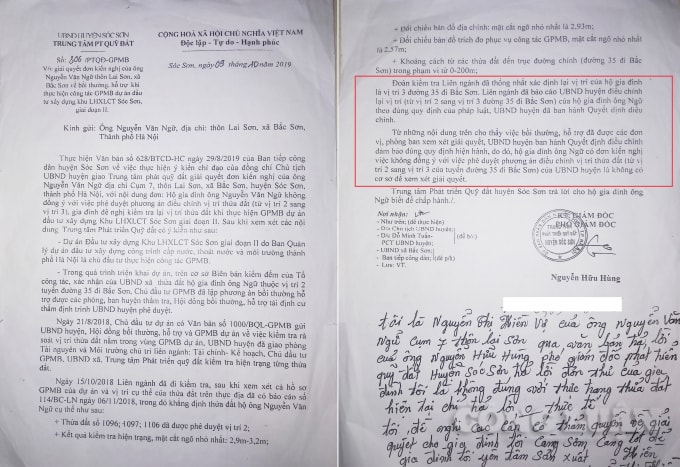 UBND HUYỆN SÓC SƠN
TRUNG TÂM PT QUỸ ĐẤT
CỘNG HOÀ XÃ HỘI CHỦ NGHĨA VIỆT NAM
Độc lập - Tự do - Hạnh phúc
Số: 806 /PTQĐ-GPMB
V/v giải quyết đơn kiến nghị của ông
Nguyễn Văn Ngữ thôn Lai Sơn, xã
Bắc Sơn về bồi thường, hỗ trợ khi
thực hiện công tác GPMB dự án đầu
tư xây dựng Khu LHXLCT Sóc Sơn
giai đoạn II.
Sóc Sơn, ngày 09 tháng 10 năm 2019
Kính gửi: Ông Nguyễn Văn Ngữ, địa chỉ: thôn Lai Sơn, xã Bắc Sơn,
Thành phố Hà Nội
Thực hiện Văn bản số 628/BTCD-HC ngày 29/8/2019 của Ban tiếp công
dân huyện Sóc Sơn về việc thực hiện ý kiến chỉ đạo của đồng chí Chủ tịch
UBND huyện giao Trung tâm phát triển quỹ đất giải quyết đơn kiến nghị của ông
Nguyễn Văn Ngữ địa chỉ Cụm 7, thôn Lai Sơn, xã Bắc Sơn, huyện Sóc Sơn,
thành phố Hà Nội, với nội dung đơn: Hộ gia đình ông Nguyễn Văn Ngữ không
đồng ý với việc phê duyệt phương án điều chỉnh vị trí thửa đất (từ vị trí 2 sang
vị trí 3), gia đình đề nghị kiểm tra lại vị trí thửa đất khi thực hiện GPMB dự án
đầu tư xây dựng Khu LHXLCT Sóc Sơn giai đoạn II. Sau khi xem xét các nội
dung, Trung tâm Phát triển Quỹ đất có ý kiến như sau:
- Dự án Đầu tư xây dựng Khu LHXLCT Sóc Sơn giai đoạn II do Ban Quản
lý dự án đầu tư xây dựng công trình cấp nước, thoát nước và môi trường thành
phố Hà Nội là chủ đầu tư thực hiện công tác GPMB.
- Trong quá trình triển khai dự án, trên cơ sở Biên bản kiểm đếm của Tổ
công tác, xác nhận của UBND xã thửa đất hộ gia đình ông Ngữ thuộc vị trí 2
tuyến đường 35 đi Bắc Sơn, Chủ đầu tư GPMB đã lập phương án bồi thường hỗ
trợ được các phòng, ban huyện thẩm tra, Hội đồng bồi thường, hỗ trợ tái định cư
thẩm định trình UBND huyện phê duyệt.
Ngày 21/8/2018, Chủ đầu tư Dự án có Văn bản số 1000/BQL-GPMB gửi
UBND huyện, Hội đồng bồi thường, hỗ trợ và GPMB dự án về việc kiểm tra rà
soát vị trí thửa đất nằm trong vùng GPMB dự án, UBND huyện đã giao phòng
Tài nguyên và Môi trường chủ trì liên ngành: Tài chính- Kế hoạch, Chủ đầu tư
GPMB, UBND xã, Trung tâm Phát triển quỹ đất kiểm tra hiện trạng từng thửa
đất.
Ngày 15/10/2018 Liên ngành đã đi kiểm tra, sau khi xem xét cả hồ sơ
GPMB của dự án và vị trí cụ thể của thửa đất trên thực địa đã có báo cáo số
114/BC-LN ngày 06/11/2018, trong đó khẳng định thửa đất hộ ông Nguyễn Văn
Ngữ cụ thể như sau:
+ Thửa đất số 1096; 1097; 1106 đã được phê duyệt vị trí 2;
+ Kết quả kiểm tra hiện trạng, mặt cắt ngõ nhỏ nhất: 2,9m-3,2m;
+ Đối chiếu bản đồ địa chính: mặt cắt ngõ nhỏ nhất là 2,93m;
+ Đối chiếu bản đồ trích đo phục vụ công tác GPMB, mặt cắt ngõ nhỏ nhất
là 2,57m;
+ Khoảng cách từ các thửa đất đến trục đường chính (đường 35 đi Bắc
Sơn) trong phạm vi từ 0-200m;
Đoàn kiểm tra Liên ngành đã thống nhất xác định lại vị trí của hộ gia đình
là vị trí 3 đường 35 đi Bắc Sơn. Liên ngành đã báo cáo UBND huyện điều chỉnh
lại vị trí (từ vị trí 2 sang vị trí 3 đường 35 đi Bắc Sơn) của hộ gia đình ông Ngữ
theo đúng quy định của pháp luật, UBND huyện đã ban hành Quyết định điều
chỉnh.
Từ những nội dung trên cho thấy việc bồi thường, hỗ trợ đã được các đơn
vị, phòng ban xem xét giải quyết, UBND huyện ban hành Quyết định điều chỉnh
đảm bảo đúng quy định hiện hành, do đó, hộ gia đình ông Ngữ có đơn kiến nghị
việc không đồng ý với việc phê duyệt phương án điều chỉnh vị trí thửa đất (từ vị
trí 2 sang vị trí 3 của tuyến đường 35 đi Bắc Sơn) của UBND huyện là không có
cơ sở để xem xét giải quyết.
Trung tâm Phát triển Quỹ đất huyện Sóc Sơn trả lời cho hộ gia đình ông
Ngữ biết để chấp hành./.
Nơi nhận:
- Như trên; (để thực hiện)
- Đ/c Chủ tịch UBND huyện;
- Đ/c Đỗ Minh Tuấn-
PCT UBND huyện;
- UBND xã Bắc Sơn;
- Ban tiếp công dân; (để b/c)
- Lưu: VT.
KT. GIÁM ĐỐC
PHÓ GIÁM ĐỐC
Nguyễn Hữu Hùng
tôi là Nguyễn Thị Hiền Vợ của ông Nguyễn Văn
Ngữ Cụm 7 thôn lai Sơn qua văn bản trả lời
của ông Nguyễn Hữu Hùng phó giám đốc phát triển
quỹ đất Huyện Sóc Sơn trả lời đơn thư của gia
đình tôi là không đúng với thực trạng thửa đất
hiện tại chỉ trả lời ở thực tế
tôi đề nghị các cấp có thẩm quyền và giải
quyết cho gia đình tôi càng sớm càng tốt để
gia đình tôi yên tâm sản xuất Hiền